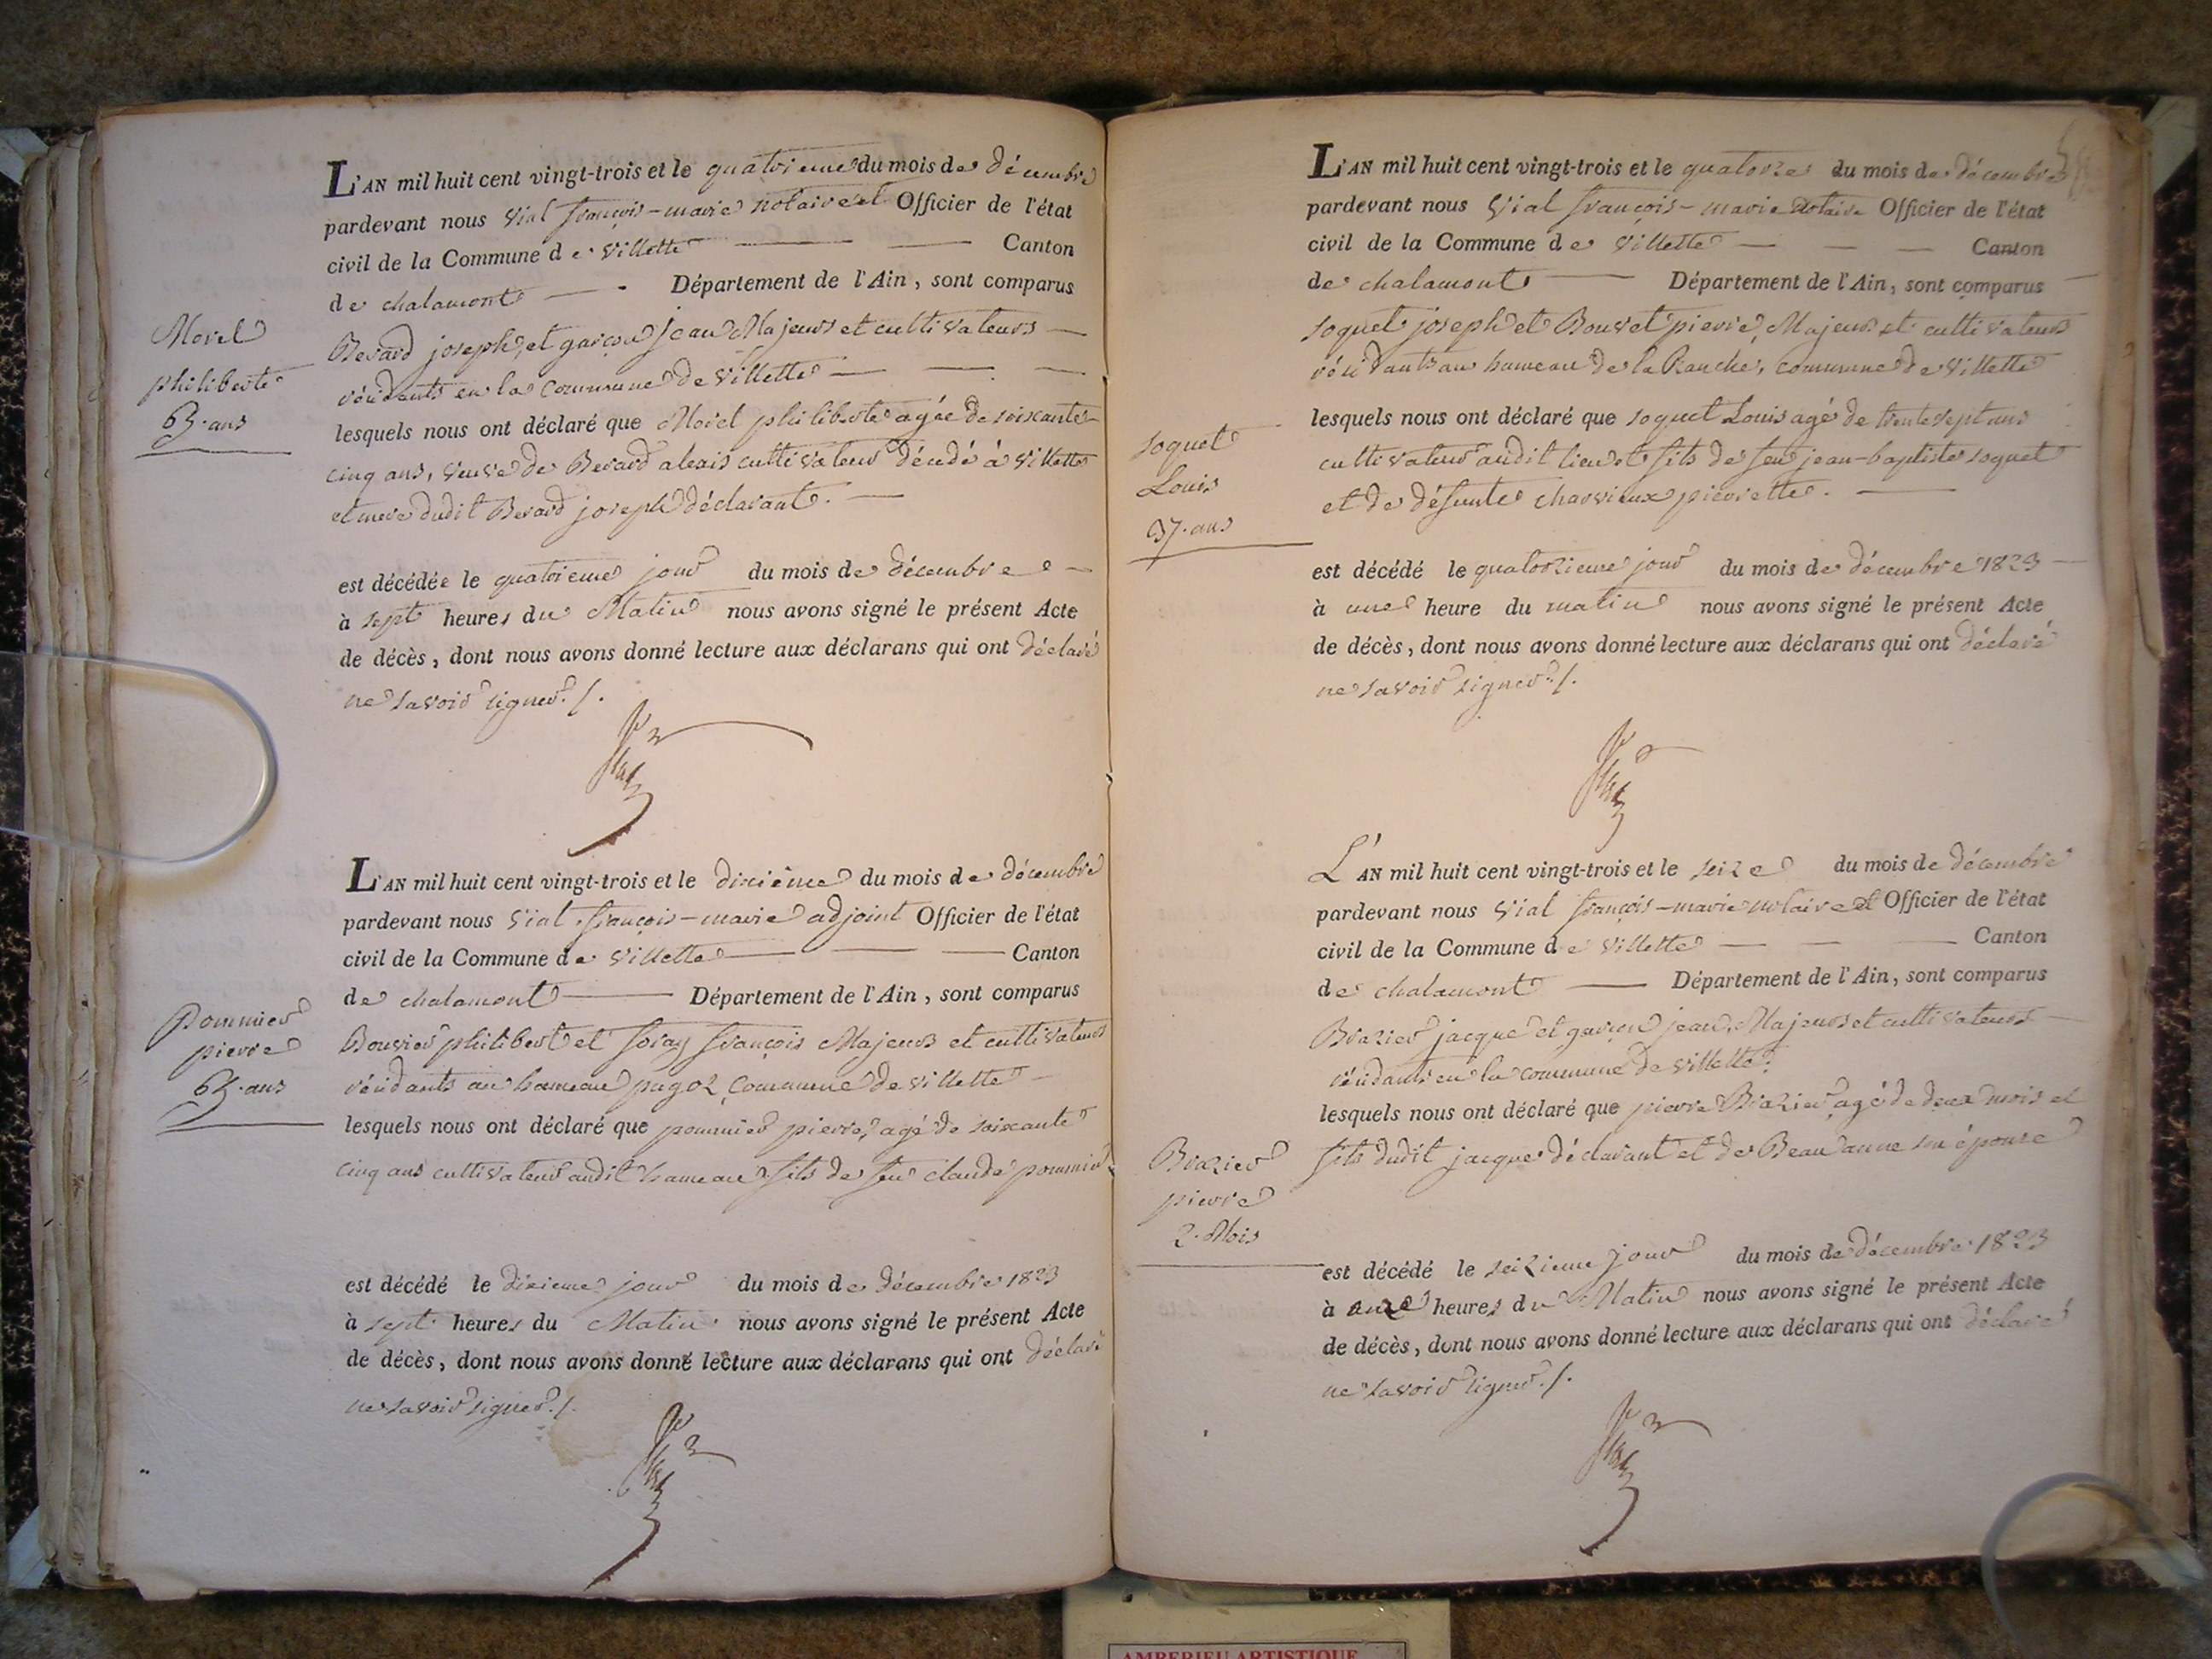 L'AN mil huit cent vingt-trois et le quatrieme du mois de décembre
pardevant nous Vial françois-marie notaire et Officier de l'état
civil de la Commune de Villette Canton
de chalamont Département de l'Ain, sont comparus
Berard joseph, et garçon jean Majeurs et cultivateurs
résidants en la commune de Villette
lesquels nous ont déclaré que Morel philiberte agée de soixante
cinq ans, veuve de Berard alexis cultivateur décédé à Villette
et mere dudit Berard joseph déclarant.
Morel
philiberte
65 ans
est décédée le quatrieme jour du mois de décembre
à sept heures du Matin nous avons signé le présent Acte
de décès, dont nous avons donné lecture aux déclarans qui ont déclaré
ne savoir signer ./.
Vial
L'AN mil huit cent vingt-trois et le dixième du mois de décembre
pardevant nous Vial françois-marie adjoint Officier de l'état
civil de la Commune de Villette Canton
de chalamont Département de l'Ain, sont comparus
Bouvier philibert et foray françois Majeurs et cultivateurs
résidants au hameau pugoz, commune de villette
lesquels nous ont déclaré que pommier pierre, agé de soixante
cinq ans cultivateur audit hameau fils de feu claude pommier
Pommier
pierre
65 ans
est décédé le dixieme jour du mois de décembre 1823
à sept heures du Matin nous avons signé le présent Acte
de décès, dont nous avons donné lecture aux déclarans qui ont déclaré
ne savoir signer ./.
Vial
L'AN mil huit cent vingt-trois et le quatorze du mois de décembre
pardevant nous Vial françois-marie Notaire Officier de l'état
civil de la Commune de Villette Canton
de chalamont Département de l'Ain, sont comparus
soquet joseph et Bouvet pierre, Majeurs et cultivateurs
résidants au hameau de la Ranche, commune de Villette
lesquels nous ont déclaré que soquet Louis agé de trente sept ans
cultivateur audit lieu et fils de feu jean-baptiste soquet
et de défunte charvieux pierrette.
soquet
Louis
37 ans
est décédé le quatorzieme jour du mois de décembre 1823
à une heure du matin nous avons signé le présent Acte
de décès, dont nous avons donné lecture aux déclarans qui ont déclaré
ne savoir signer ./.
Vial
L'AN mil huit cent vingt-trois et le seize du mois de décembre
pardevant nous Vial françois-marie notaire et Officier de l'état
civil de la Commune de Villette Canton
de chalamont Département de l'Ain, sont comparus
Brazier jacque et garçon jean, Majeurs et cultivateurs
résidants en la commune de Villette.
lesquels nous ont déclaré que pierre Brazier agé de deux mois et
fils dudit jacque déclarant et de Beau anne son épouse
Brazier
pierre
2 Mois
est décédé le seizieme jour du mois de décembre 1823
à onze heures du Matin nous avons signé le présent Acte
de décès, dont nous avons donné lecture aux déclarans qui ont déclaré
ne savoir signer ./.
Vial
AMBERIEU ARTISTIQUE